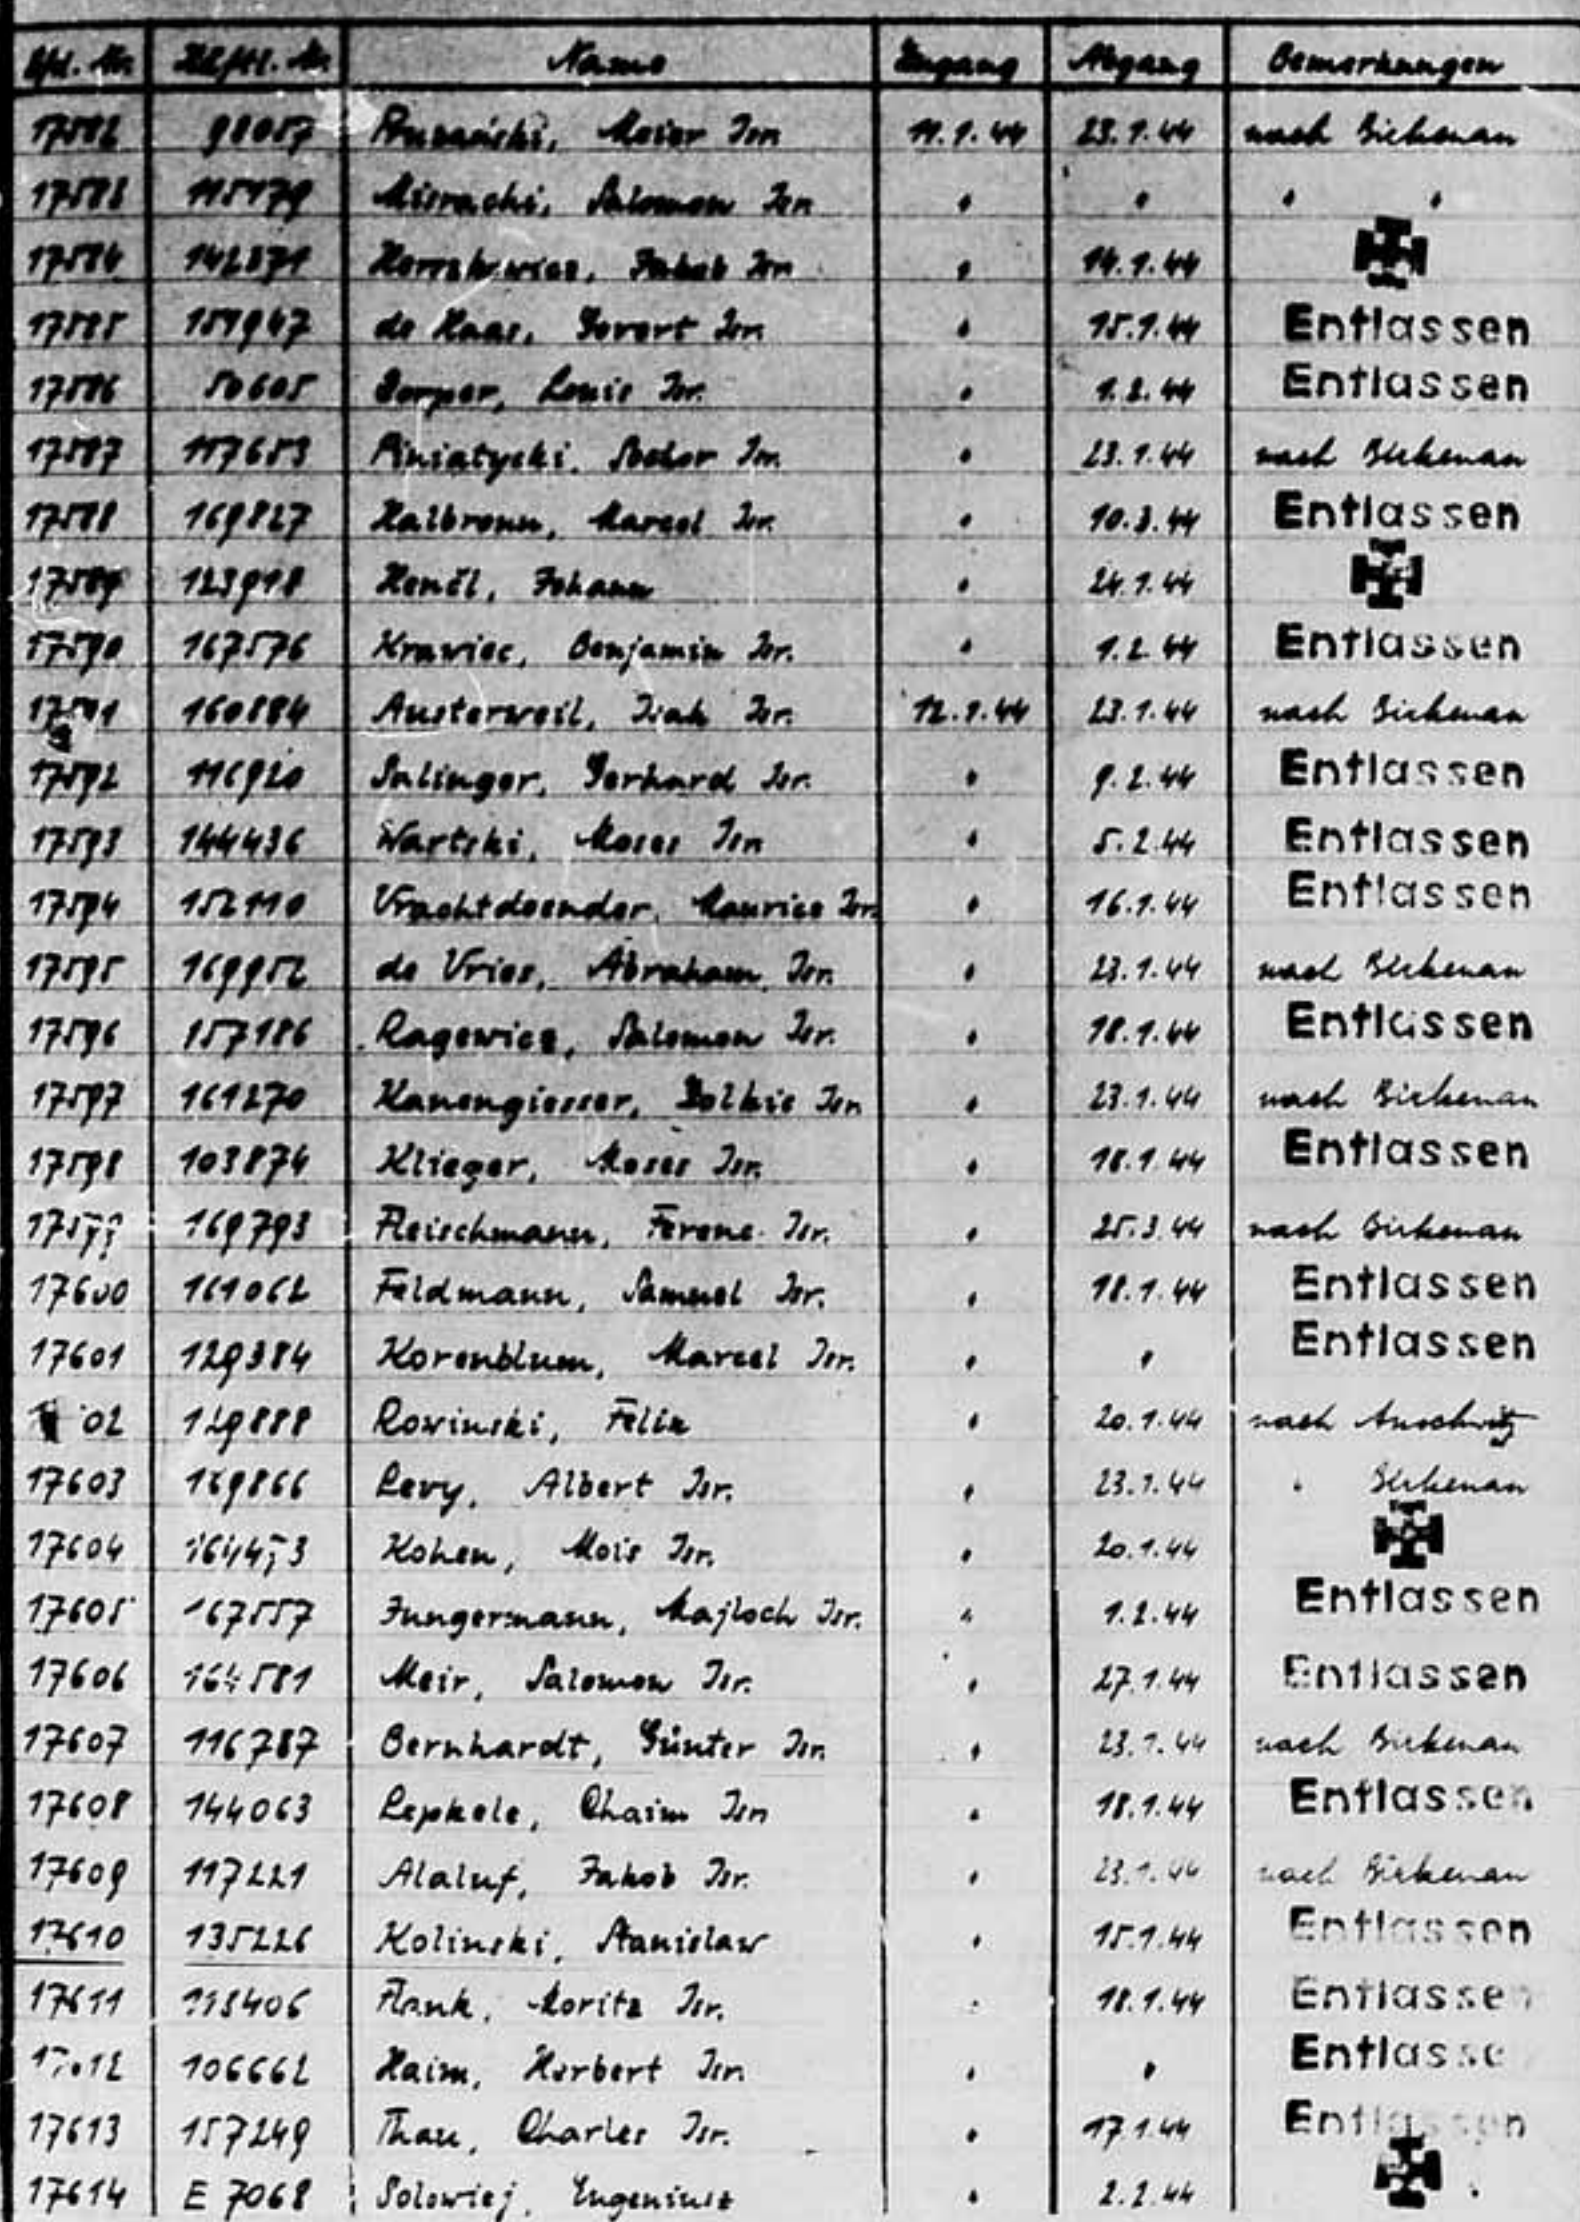 Lfd. Nr. Häftl. Nr. Name Zugang Abgang Bemerkungen
17582 98057 Meier Isr. 11.1.44 23.1.44 nach Birkenau
17583 115179 Misrachi, Salomon Isr. " " " "
17584 142371 Jakob Isr. " 14.1.44
17585 151947 de Haas, Govert Isr. " 15.1.44 Entlassen
17586 50605 Dorper, Louis Isr. " 1.2.44 Entlassen
17587 117653 Piniatycki, Isr. " 23.1.44 nach Birkenau
17588 169827 Halbronn, Marcel Isr. " 10.3.44 Entlassen
17589 123918 Henčl, Johann " 24.1.44
17590 167576 Krawiec, Benjamin Isr. " 1.2.44 Entlassen
17591 160884 Austerweil, Isak Isr. 12.1.44 23.1.44 nach Birkenau
17592 116920 Salinger, Gerhard Isr. " 9.2.44 Entlassen
17593 144436 Wartski, Moses Isr. " 5.2.44 Entlassen
17594 152110 Vrachtdoender, Maurice Isr. " 16.1.44 Entlassen
17595 169952 de Vries, Abraham Isr. " 23.1.44 nach Birkenau
17596 157186 Ragewicz, Salomon Isr. " 18.1.44 Entlassen
17597 161270 Kanengiesser, Isr. " 23.1.44 nach Birkenau
17598 103874 Klieger, Moses Isr. " 18.1.44 Entlassen
17599 169793 Fleischmann, Ferenc Isr. " 25.3.44 nach Birkenau
17600 161062 Feldmann, Samuel Isr. " 18.1.44 Entlassen
17601 129384 Korenblum, Marcel Isr. " " Entlassen
02 129888 Rowinski, Felix " 20.1.44 nach Auschwitz
17603 169866 Levy, Albert Isr. " 23.1.44 " Birkenau
17604 Kohen, Mois Isr. " 20.1.44
17605 167557 Jungermann, Majloch Isr. " 1.2.44 Entlassen
17606 164581 Meir, Salomon Isr. " 27.1.44 Entlassen
17607 116787 Bernhardt, Günter Isr. " 23.1.44 nach Birkenau
17608 144063 Lepkele, Chaim Isr. " 18.1.44 Entlassen
17609 117221 Alaluf, Jakob Isr. " 23.1.44 nach Birkenau
17610 135226 Kolinski, Stanislaw " 15.1.44 Entlassen
17611 113406 Flank, Moritz Isr. " 18.1.44 Entlassen
17612 106662 Haim, Herbert Isr. " " Entlassen
17613 157249 Thau, Charles Isr. " 17.1.44 Entlassen
17614 E 7068 Solowiej, Eugeniusz " 2.2.44